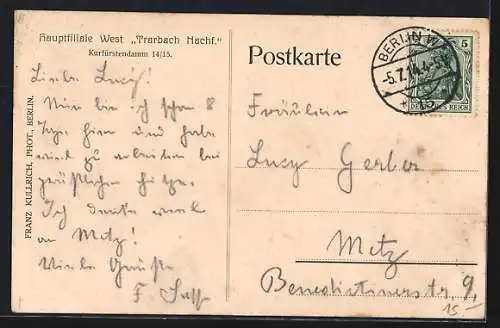 Hauptfiliale West „Trarbach Nachf."
Kurfürstendamm 14/15.
FRANZ KULLRICH, PHOT., BERLIN.
Liebe Lucy!
Nun bin ich schon 8
Tage hier und habe
viel zu arbeiten bei
gräßlicher Hitze.
Ich denke viel
an Metz!
Viele Grüße
F.
Postkarte
BERLIN W
-5.7.14.4-5N
* 15
5
DEUTSCHES REICH
Fräulein
Lucy Gerber
Metz
Benediktinerstr. 9.
15